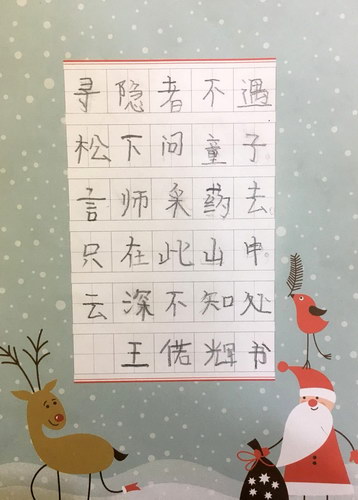 寻隐者不遇
松下问童子
言师采药去
只在此山中
云深不知处
王偌辉书